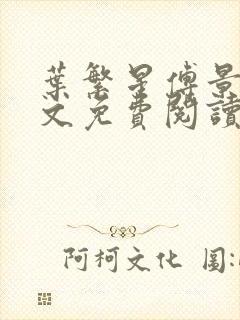 葉繁星傅景
文免費閱讀
阿柯文化 圖: